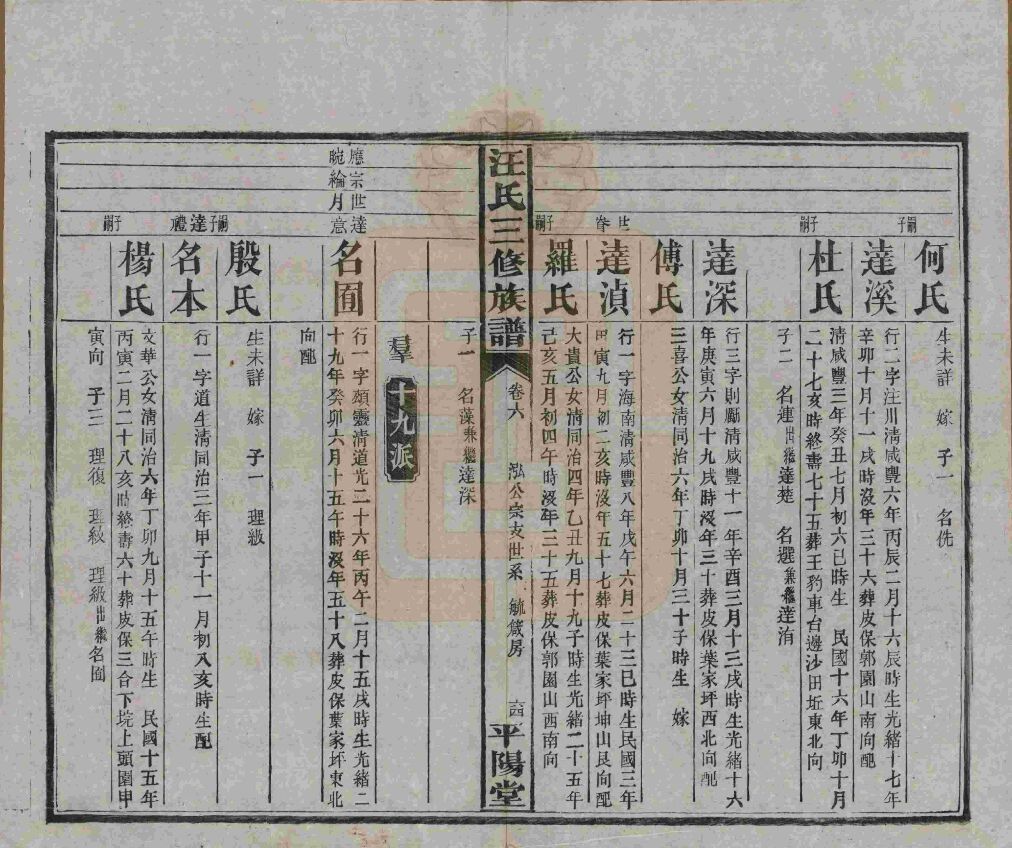 何氏
生未詳　嫁　子一　名侁
嗣子
達溪
行二字注川清咸豐六年丙辰二月十六辰時生光緒十七年
辛卯十月十一戌時沒年三十六葬皮保郭園山南向配
嗣子
杜氏
清咸豐三年癸丑七月初六己時生　民國十六年丁卯十月
二十七亥時終壽七十五葬王豹車台邊沙田坵東北向
子二　名連出繼達楚　名選兼繼達洧
達深
行三字則勵清咸豐十一年辛酉三月十三戌時生光緒十六
年庚寅六月十九戌時沒年三十葬皮保葉家坪西北向配
傅氏
三喜公女清同治六年丁卯十月三十子時生　嫁
世眷
達湞
行一字海南清咸豐八年戊午六月二十三巳時生民國三年
甲寅九月初二亥時沒年五十七葬皮保葉家坪坤山艮向配
嗣子
羅氏
大貴公女清同治四年乙丑九月十九子時生光緒二十五年
己亥五月初四午時沒年三十五葬皮保郭園山西南向
汪氏三修族譜
卷六　泓公宗支世系　毓箴房
平陽堂
子一　名藻兼繼達深
羣
十九派
應宗世達
畹綸月意
名囿
行一字頌靈清道光二十六年丙午二月十五戌時生光緒二
十九年癸卯六月十五午時沒年五十八葬皮保葉家坪東北
向配
殷氏
生未詳　嫁　子一　理級
嗣子
達禮
名本
行一字道生清同治三年甲子十一月初八亥時生配
嗣子
楊氏
文華公女清同治六年丁卯九月十五午時生　民國十五年
丙寅二月二十八亥時終壽六十葬皮保三合下垸上頭園申
寅向　子三　理復　理級　理級出繼名囿